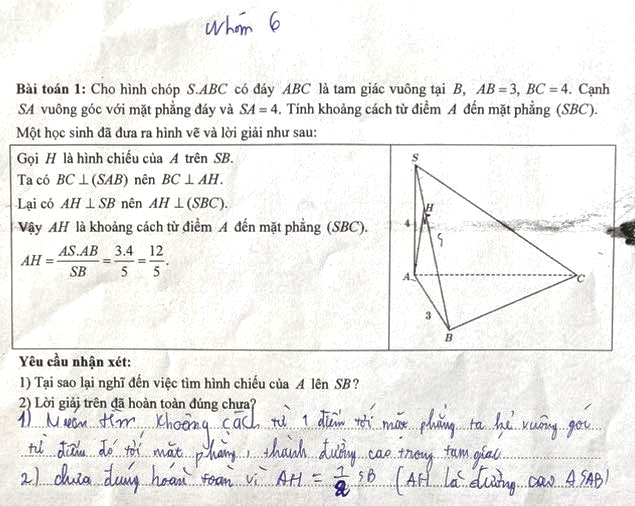 Nhóm 6
Bài toán 1: Cho hình chóp S.ABC có đáy ABC là tam giác vuông tại B, AB = 3, BC = 4. Cạnh
SA vuông góc với mặt phẳng đáy và SA = 4. Tính khoảng cách từ điểm A đến mặt phẳng (SBC).
Một học sinh đã đưa ra hình vẽ và lời giải như sau:
Gọi H là hình chiếu của A trên SB.
Ta có BC ⊥ (SAB) nên BC ⊥ AH.
Lại có AH ⊥ SB nên AH ⊥ (SBC).
Vậy AH là khoảng cách từ điểm A đến mặt phẳng (SBC).
AH = AS.AB/SB = 3.4/5 = 12/5.
S
H
4
5
A
C
3
B
Yêu cầu nhận xét:
1) Tại sao lại nghĩ đến việc tìm hình chiếu của A lên SB?
2) Lời giải trên đã hoàn toàn đúng chưa?
1) Muốn tìm khoảng cách từ 1 điểm tới mặt phẳng ta kẻ vuông góc
từ điểm đó tới mặt phẳng, thành đường cao trong tam giác
2) chưa đúng hoàn toàn vì AH = 1/2 SB (AH là đường cao ΔSAB)